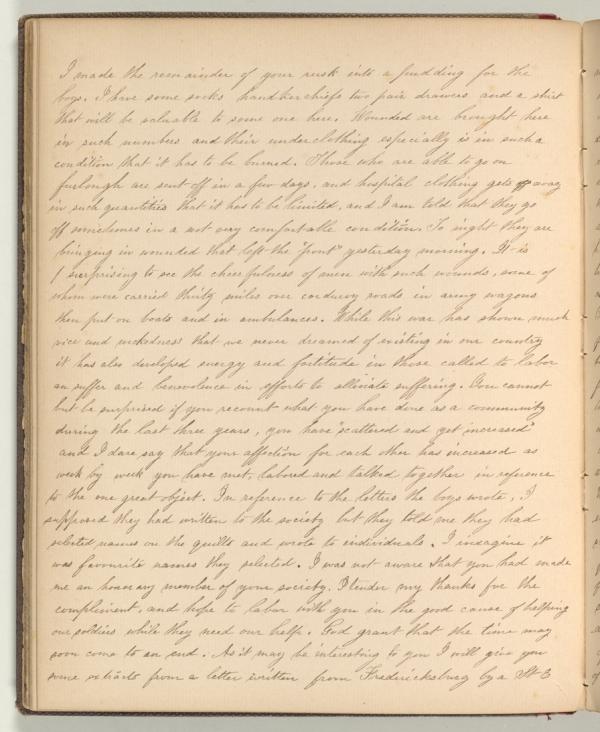 I made the remainder of your rusk into a pudding for the
boys. I have some socks handkerchiefs two pair drawers and a shirt
that will be valuable to some one here. Wounded are brought here
in such numbers and their underclothing especially is in such a
condition that it has to be burned. Those who are able to go on
furlough are sent off in a few days, and hospital clothing gets away
in such quantities that it has to be limited, and I am told that they go
off sometimes in a not very comfortable condition. To night they are
bringing in wounded that left the "front" yesterday morning. It is
surprising to see the cheerfulness of men with such wounds, some of
whom were carried thirty miles over corduroy roads in army wagons
then put on boats and in ambulances. While this war has shown much
vice and wickedness that we never dreamed of existing in our country
it has also developed energy and fortitude in those called to labor
an suffer and benevolence in efforts to alleviate suffering. You cannot
but be surprised if you recount what you have done as a community
during the last three years, you have "scattered and yet increased"
and I dare say that your affection for each other has increased as
week by week you have met, labored and talked together in reference
to the one great object. In reference to the letters the boys wrote, I
supposed they had written to the society but they told me they had
selected names on the quilts and wrote to individuals. I imagine it
was favourite names they selected. I was not aware that you had made
me an honorary member of your society. I tender my thanks for the
compliment, and hope to labor with you in the good cause of helping
our soldiers while they need our help. God grant that the time may
soon come to an end. As it may be interesting to you I will give you
some extracts from a letter written from Fredericksburg by a